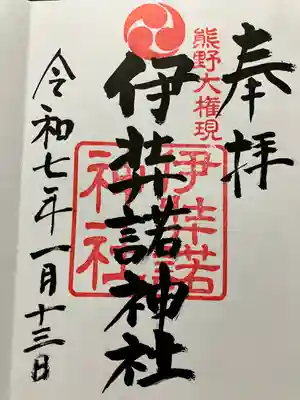 奉拝
熊野大権現
伊弉諾神社
伊弉諾
神社
令和七年一月十三日